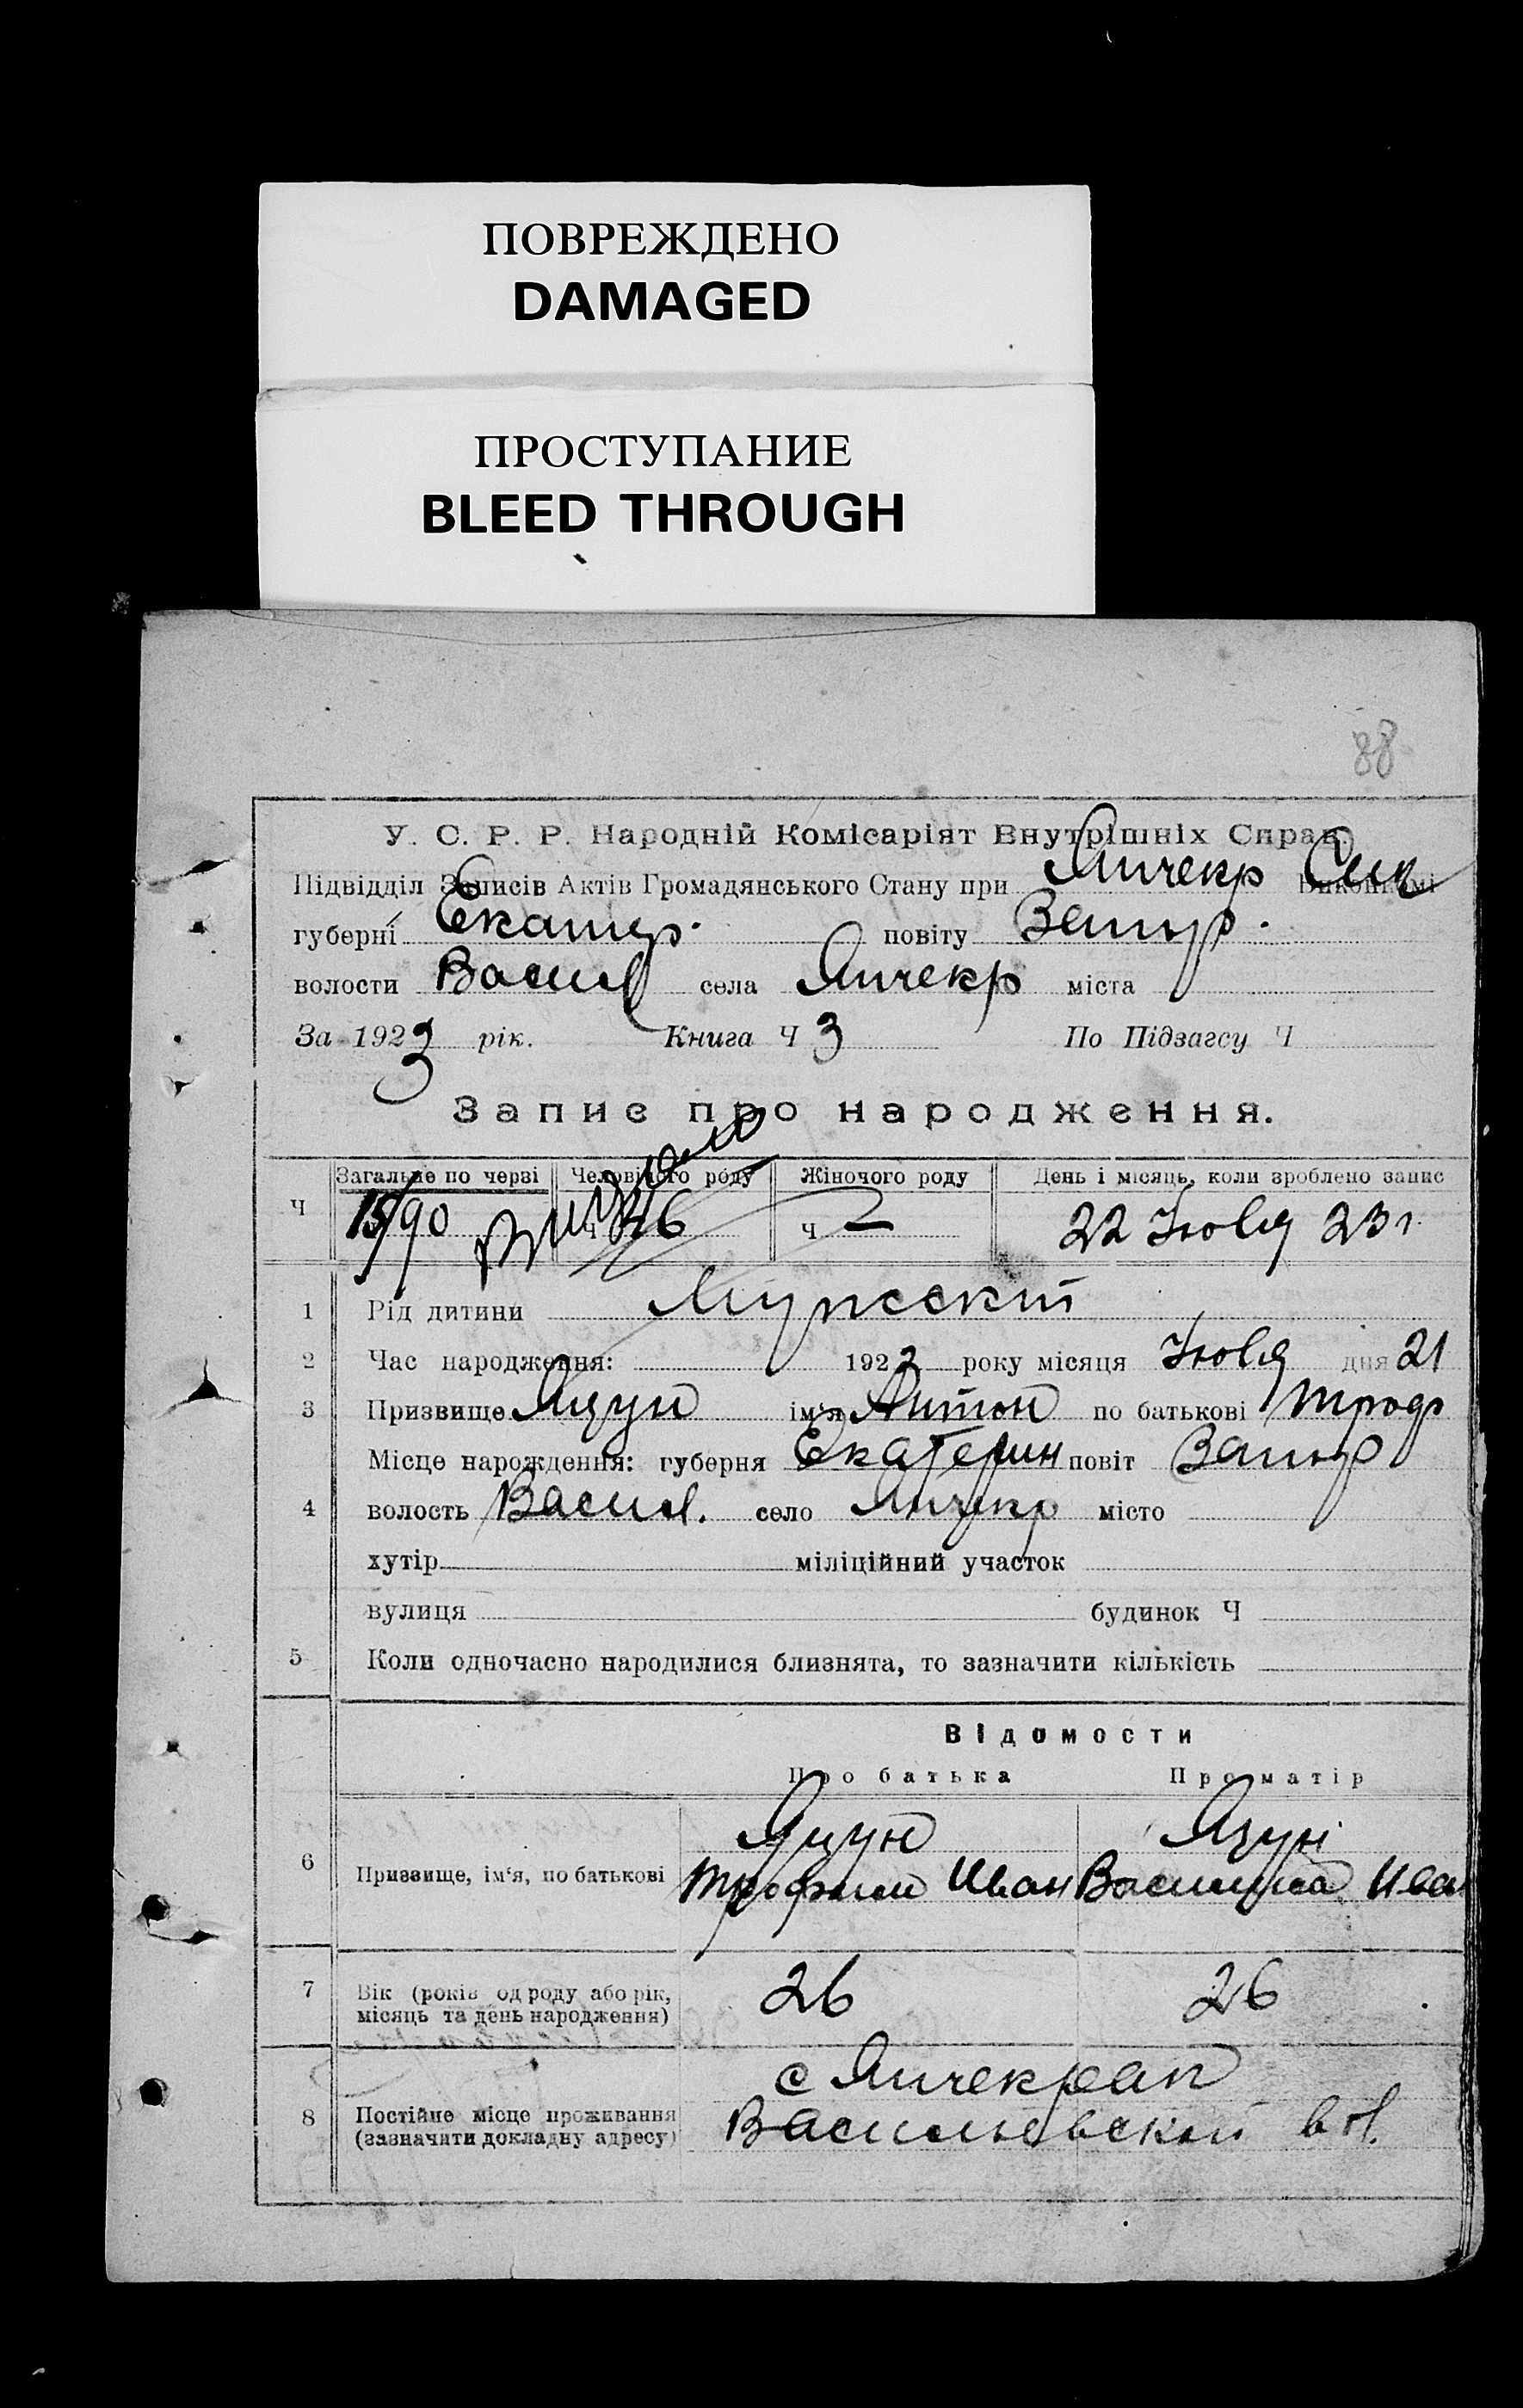 ПОВРЕЖДЕНО
DAMAGED
ПРОСТУПАНИЕ
BLEED THROUGH
88
У. С. Р. Р. Народній Комісаріят Внутрішніх Справ.
Підвідділ Записів Актів Громадянського Стану при Янчекр Сик Виконкомі
губерні Екатер. повіту Запор.
волости Васил села Янчекр міста
За 1923 рік. Книга Ч 3 По Підзагсу Ч
Запис про народження.
Загальне по черзі Чоловічого роду Жіночого роду День і місяць, коли зроблено запис
Ч 15/90 ч 46 ч — 22 Июля 23 г.
1 Рід дитини Мужескт
2 Час народження: 1923 року місяця Июля дня 21
3 Призвище Яцун ім'я Антон по батькові Троф
Місце народження: губерня Екатерин повіт Запор
4 волость Васил. село Янчекр місто
хутір міліційний участок
вулиця будинок Ч
5 Коли одночасно народилися близнята, то зазначити кількість
Відомости
Про батька Про матір
Яцун Яцун
6 Призвище, ім'я, по батькові Трофим Иван Василиса Иван
7 Вік (років од роду або рік, 26 26
місяць та день народження)
с Янчекрак
8 Постійне місце проживання Васильевской вол.
(зазначити докладну адресу)